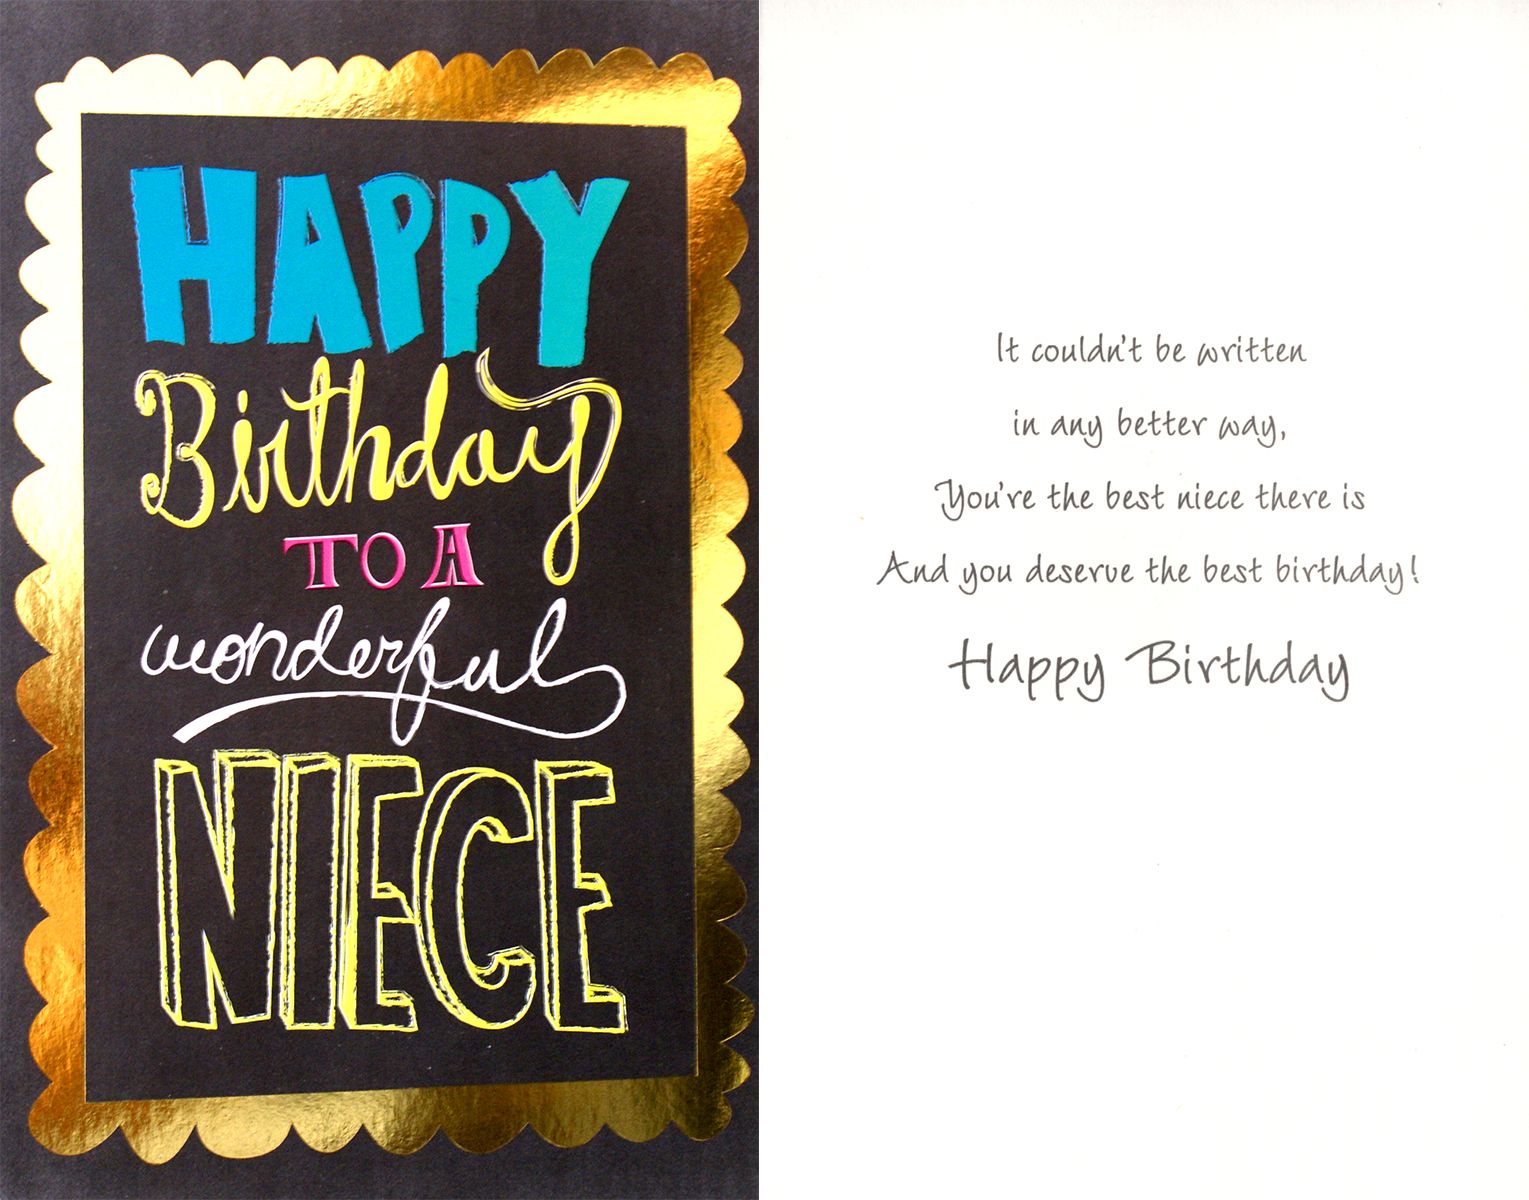 HAPPY
Birthday
TO A
wonderful
NIECE
It couldn't be written
in any better way,
You're the best niece there is
And you deserve the best birthday!
Happy Birthday